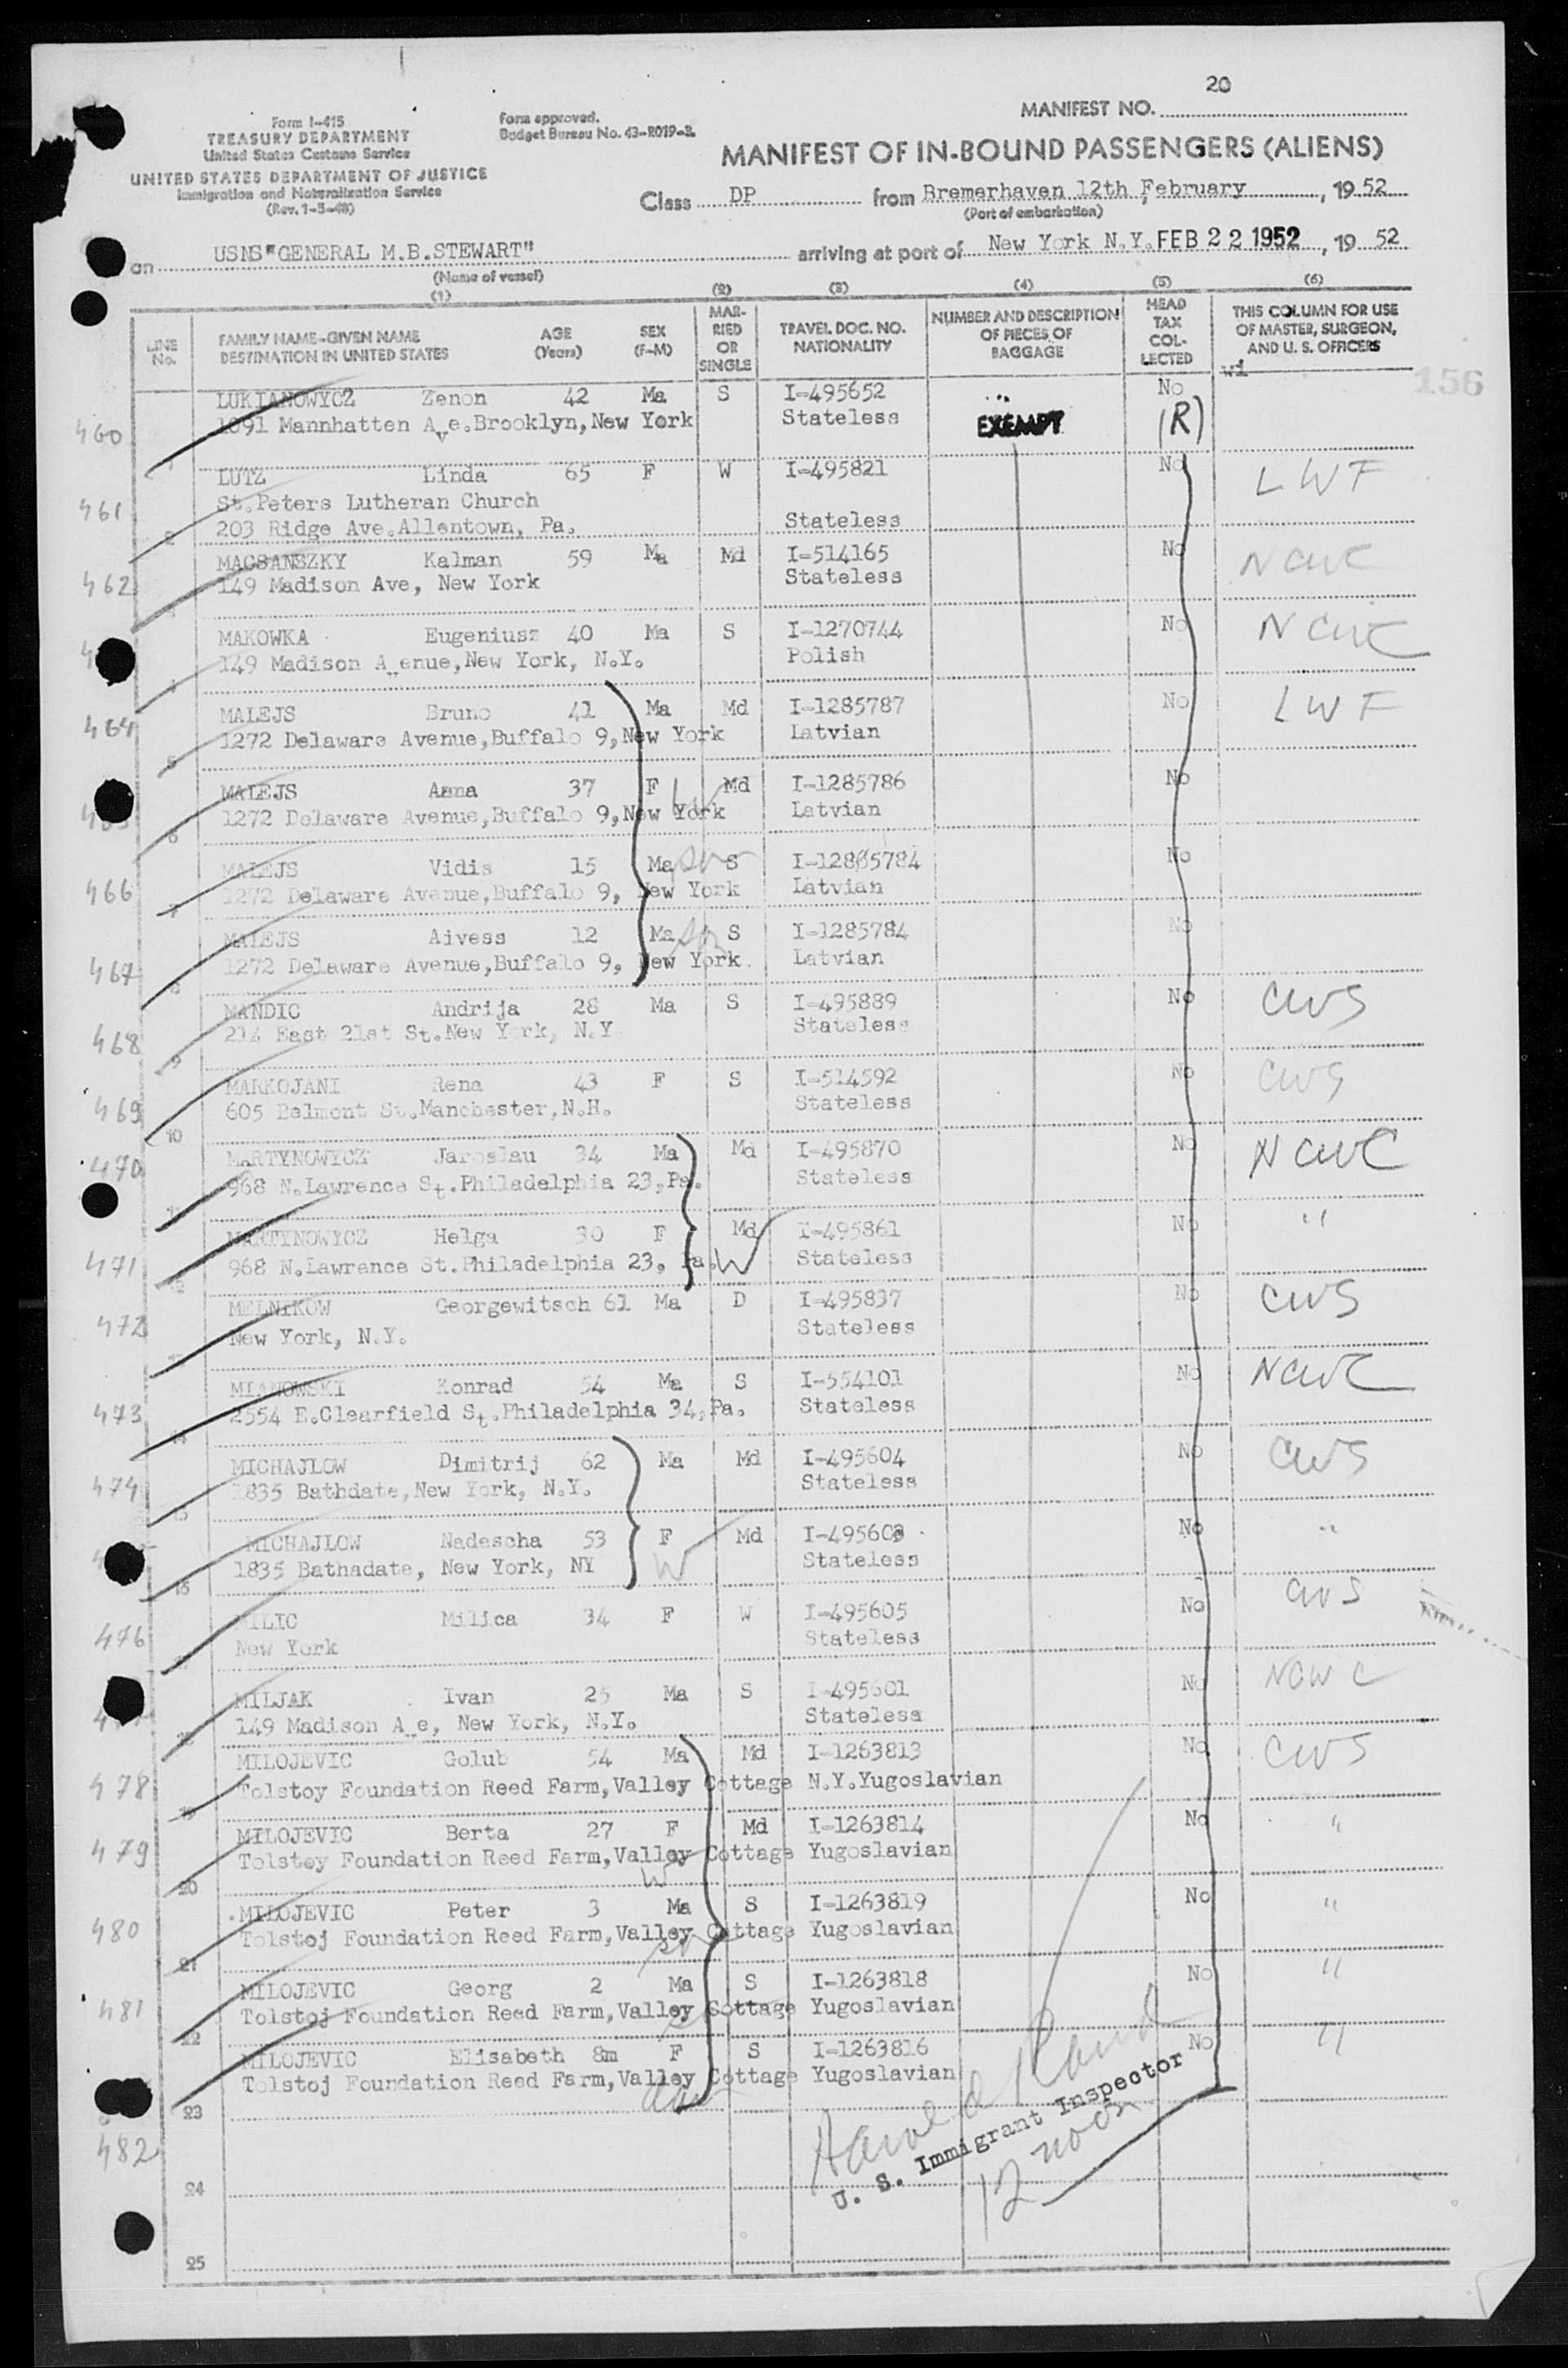 20
MANIFEST NO.
Form I-415
TREASURY DEPARTMENT
United States Customs Service
UNITED STATES DEPARTMENT OF JUSTICE
Immigration and Naturalization Service
(Rev. 1-5-48)
Form approved.
Budget Bureau No. 43-R019-2.
MANIFEST OF IN-BOUND PASSENGERS (ALIENS)
Class DP from Bremerhaven 12th, February, 19 52
(Port of embarkation)
on USNS "GENERAL M.B.STEWART" arriving at port of New York N.Y. FEB 22 1952, 19 52
(Name of vessel)
(1) (2) (3) (4) (5) (6)
LINE No. FAMILY NAME-GIVEN NAME DESTINATION IN UNITED STATES AGE (Years) SEX (F-M) MARRIED OR SINGLE TRAVEL DOC. NO. NATIONALITY NUMBER AND DESCRIPTION OF PIECES OF BAGGAGE HEAD TAX COLLECTED THIS COLUMN FOR USE OF MASTER, SURGEON, AND U. S. OFFICERS
wi
156
LUKIANOWYCZ Zenon 42 Ma S I-495652 No
460 1091 Mannhatten Ave.Brooklyn,New York Stateless EXEMPT (R)
1
LUTZ Linda 65 F W I-495821 No LWF
461 St.Peters Lutheran Church
2 203 Ridge Ave.Allentown, Pa. Stateless
MACSANSZKY Kalman 59 Ma Md I-514165 No NCWC
462 149 Madison Ave, New York Stateless
MAKOWKA Eugeniusz 40 Ma S I-1270744 No NCWC
149 Madison A enue,New York, N.Y. Polish
MALEJS Bruno 41 Ma Md I-1285787 No LWF
464 1272 Delaware Avenue,Buffalo 9,New York Latvian
5
MALEJS Anna 37 F W Md I-1285786 No
1272 Delaware Avenue,Buffalo 9,New York Latvian
6
MALEJS Vidis 15 Ma son S I-12885784 No
466 1272 Delaware Avenue,Buffalo 9, New York Latvian
7
MALEJS Aivess 12 Ma son S I-1285784 No
467 1272 Delaware Avenue,Buffalo 9, New York. Latvian
8
MANDIC Andrija 28 Ma S I-495889 No CWS
468 214 East 21st St.New York, N.Y. Stateless
9
MARKOJANI Rena 43 F S I-514592 No CWS
469 605 Belmont St.Manchester,N.H. Stateless
10
470 MARTYNOWYCZ Jaroslau 34 Ma Md I-495870 No NCWC
968 N.Lawrence St.Philadelphia 23,Pa. Stateless
MARTYNOWYCZ Helga 30 F Md I-495861 No "
471 968 N.Lawrence St.Philadelphia 23, Pa. W Stateless
12
MELNIKOW Georgewitsch 61 Ma D I-495837 No CWS
472 New York, N.Y. Stateless
MIANOWSKI Konrad 54 Ma S I-554101 No NCWC
473 2554 E.Clearfield St.Philadelphia 34,Pa. Stateless
14
MICHAJLOW Dimitrij 62 Ma Md I-495604 No CWS
474 1835 Bathdate,New York, N.Y. Stateless
15
MICHAJLOW Nadescha 53 F Md I-495603 No "
1835 Bathadate, New York, NY W Stateless
16
MILIC Milica 34 F W I-495605 No CWS
476 New York Stateless
MILJAK Ivan 25 Ma S I-495601 No NCWC
149 Madison A e, New York, N.Y. Stateless
18
MILOJEVIC Golub 54 Ma Md I-1263813 No CWS
478 Tolstoy Foundation Reed Farm,Valley Cottage N.Y.Yugoslavian
19
MILOJEVIC Berta 27 F Md I-1263814 No "
479 Tolstoy Foundation Reed Farm,Valley Cottage Yugoslavian
20 W
MILOJEVIC Peter 3 Ma S I-1263819 No "
480 Tolstoj Foundation Reed Farm,Valley Cottage Yugoslavian
21 son
MILOJEVIC Georg 2 Ma S I-1263818 No "
481 Tolstoj Foundation Reed Farm,Valley Cottage Yugoslavian
22
MILOJEVIC Elisabeth 8m F S I-1263816 No "
Tolstoj Foundation Reed Farm,Valley Cottage Yugoslavian
23 dau
482
Harold Rand
U. S. Immigrant Inspector
12 noon
24
25